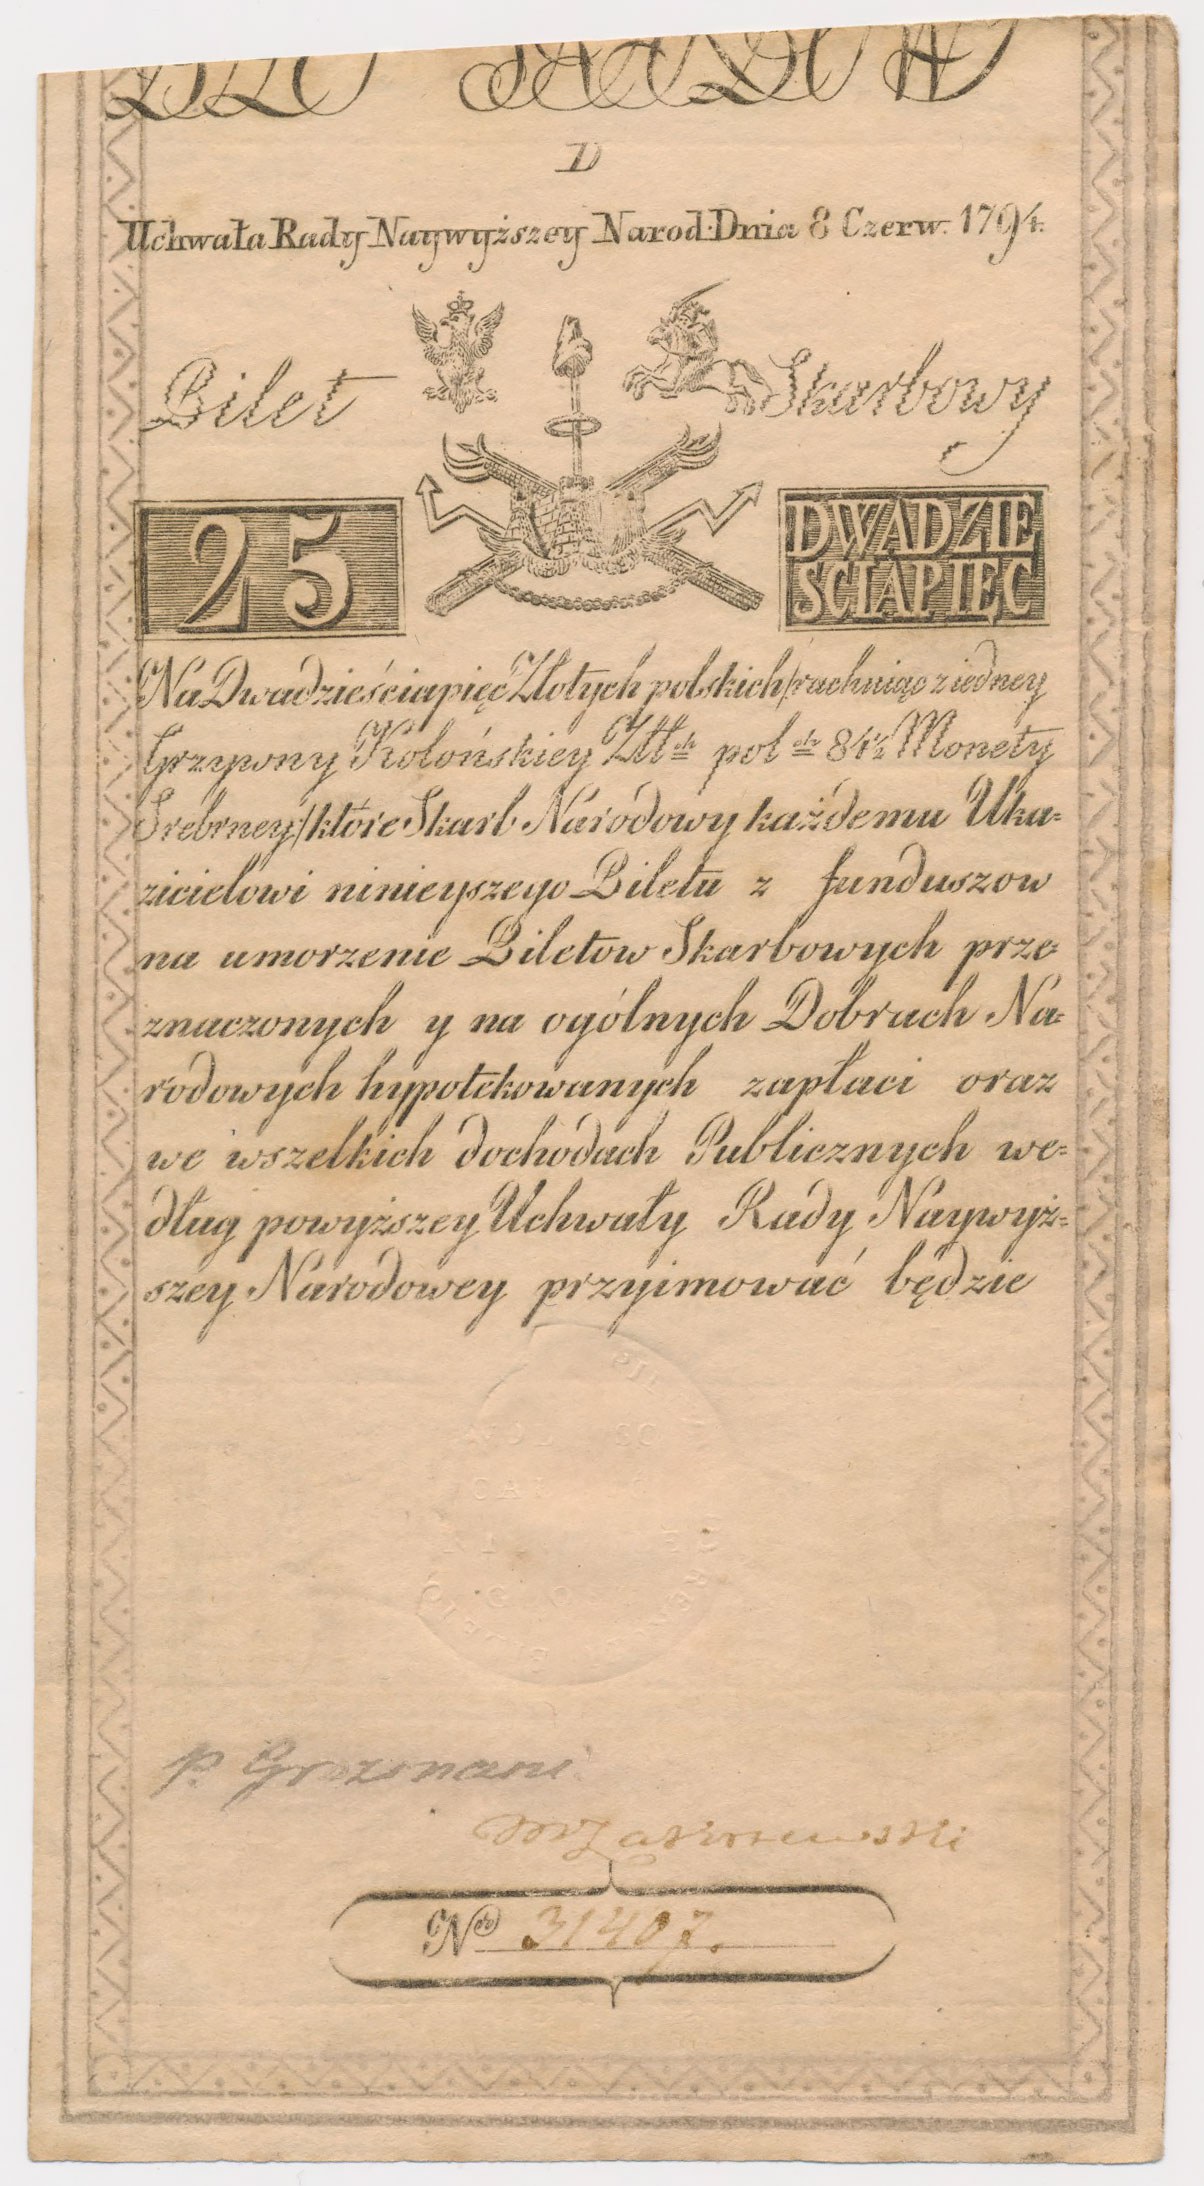 D
Uchwała Rady Naywyższey Narod: Dnia 8 Czerw. 1794.
Bilet Skarbowy
25
DWADZIE
SCIAPIĘC
Na Dwadzieściapięć Złotych polskich /: rachuiąc z iedney
Grzywny Kolońskiey Złł ch pol ch 84½ Monety
Srebrney :/ które Skarb Narodowy każdemu Uka=
zicielowi ninieyszego Biletu z funduszow
na umorzenie Biletow Skarbowych prze=
znaczonych y na ogólnych Dobrach Na=
rodowych hypotekowanych zapłaci oraz
we wszelkich dochodach Publicznych we=
dług powyższey Uchwały Rady Naywyż=
szey Narodowey przyimować będzie
p. Grozmani
MZakrzewski
N ro 31407.